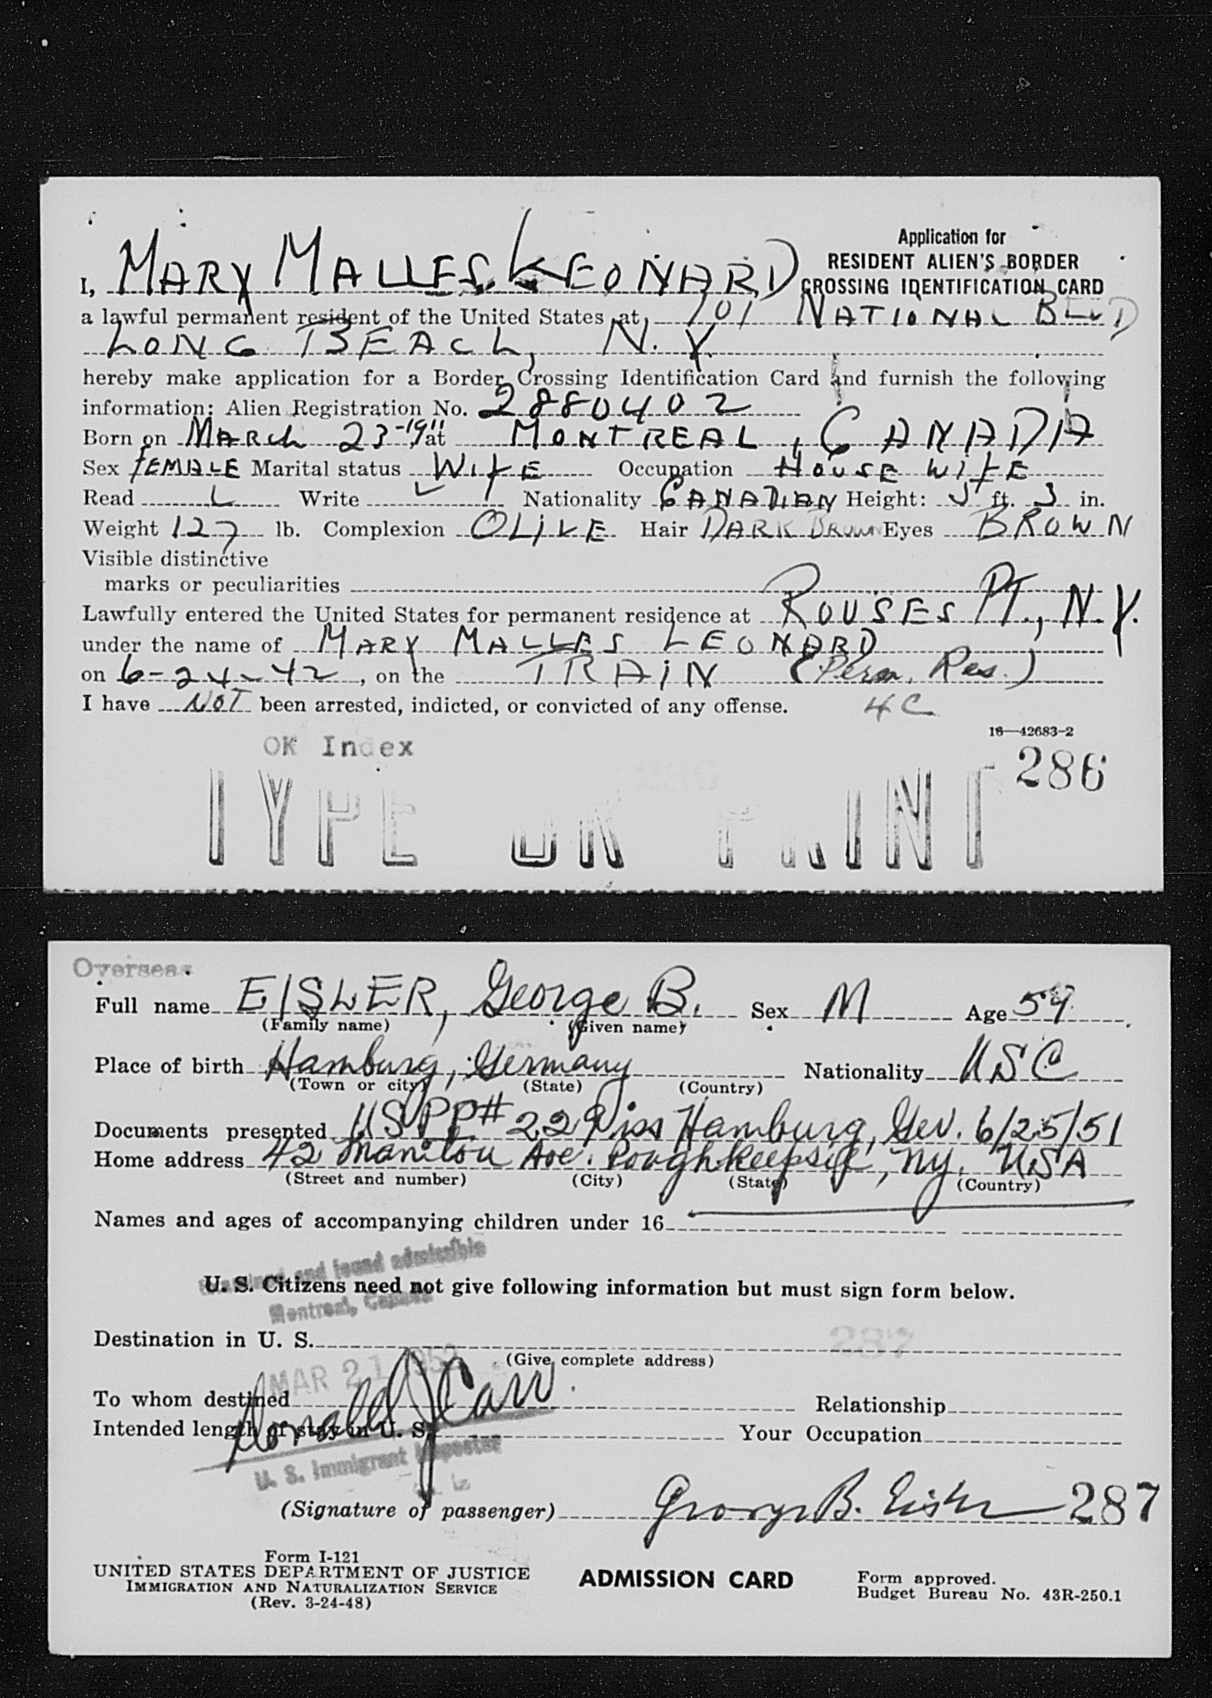 Application for
RESIDENT ALIEN'S BORDER
CROSSING IDENTIFICATION CARD
I, MARY MALLES LEONARD
a lawful permanent resident of the United States at 701 NATIONAL BLVD
LONG BEACH, N.Y.
hereby make application for a Border Crossing Identification Card and furnish the following
information: Alien Registration No. 2880402
Born on MARCH 23-1911 at MONTREAL, CANADA
Sex FEMALE Marital status WIFE Occupation HOUSE WIFE
Read Write Nationality CANADIAN Height: 5 ft. 3 in.
Weight 127 lb. Complexion OLIVE Hair DARK BROWN Eyes BROWN
Visible distinctive
marks or peculiarities
Lawfully entered the United States for permanent residence at ROUSES PT., N.Y.
under the name of MARY MALLES LEONARD
on 6-24-42, on the TRAIN (Perm. Res.)
I have NOT been arrested, indicted, or convicted of any offense. 4C
16—42683-2
OK Index
286
TYPE OR PRINT
Overseas
Full name EISLER, George B. Sex M Age 59
(Family name) (Given name)
Place of birth Hamburg, Germany Nationality USC
(Town or city) (State) (Country)
Documents presented US PP# 229 iss Hamburg, Ger. 6/25/51
Home address 42 Manitou Ave. Poughkeepsie, NY. USA
(Street and number) (City) (State) (Country)
Names and ages of accompanying children under 16
Examined and found admissible
U. S. Citizens need not give following information but must sign form below.
Montreal, Canada
Destination in U. S.
287
(Give complete address)
MAR 21 1952
To whom destined Relationship
Donald J Carr
Intended length of stay in U. S. Your Occupation
U. S. Immigrant Inspector
(Signature of passenger) George B. Eisler 287
Form I-121
UNITED STATES DEPARTMENT OF JUSTICE
IMMIGRATION AND NATURALIZATION SERVICE
(Rev. 3-24-48)
ADMISSION CARD
Form approved.
Budget Bureau No. 43R-250.1